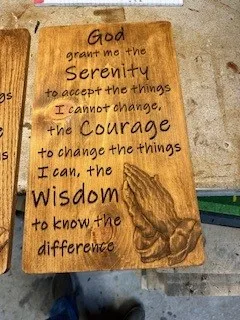 God
grant me the
Serenity
to accept the things
I cannot change,
the Courage
to change the things
I can, the
Wisdom
to know the
difference